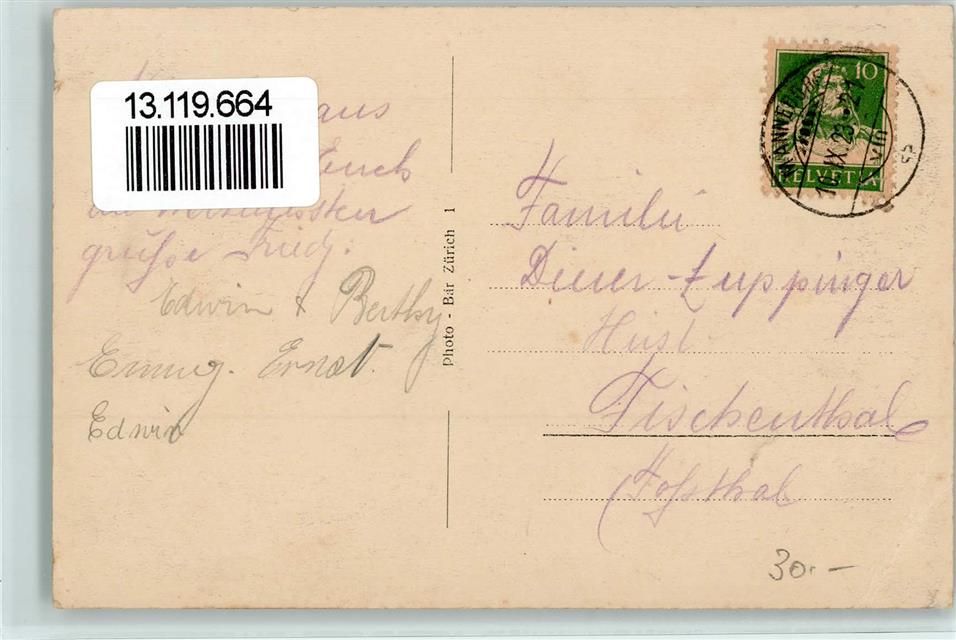 13.119.664
aus
Euch
grüße Friedj.
Edwin & Berthy
Emmy. Ernst.
Edwin
Photo - Bär Zürich 1
10
HELVETIA
Familie
Diener-Zuppinger
Hüsl
Fischenthal
(Tössthal
30.-